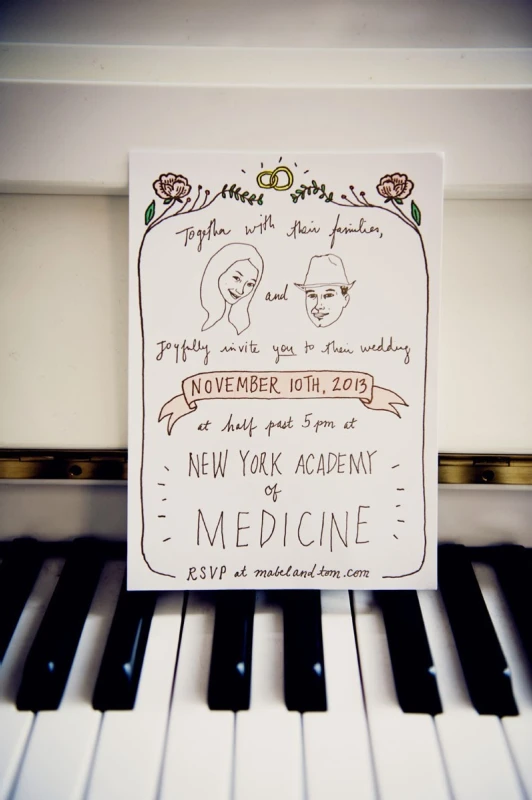 Together with their families,
and
Joyfully invite you to their wedding
NOVEMBER 10TH, 2013
at half past 5pm at
NEW YORK ACADEMY
of
MEDICINE
RSVP at mabelandtom.com